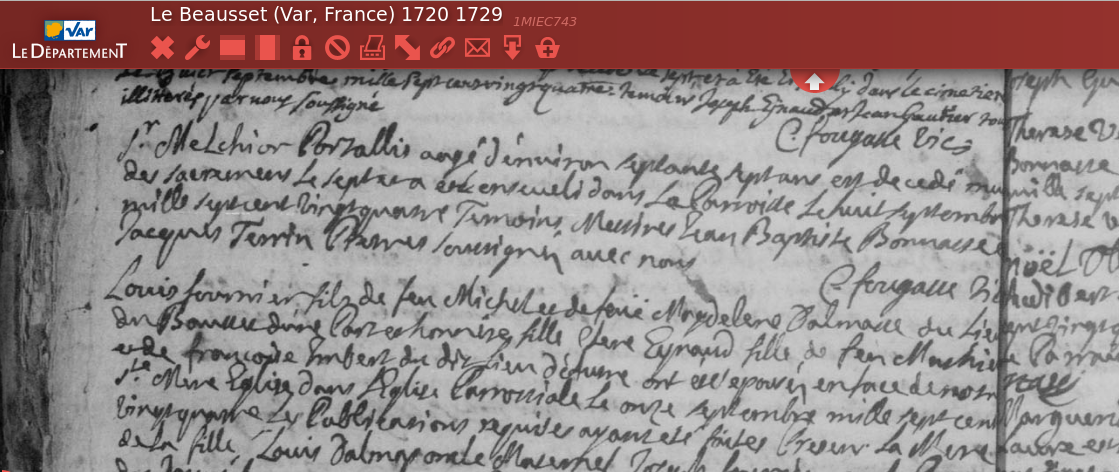 Le Beausset (Var, France) 1720 1729
1MIEC743
VAR
LE DÉPARTEMENT
septembre mille sept cens vingt quatre temoins Joseph
illiteres par nous soussigné
C. fougasse Vic
Sr Melchior Portallis aagé d'environ septante sept ans est decedé muni
des sacremens le sept et a esté enseveli dans La Parroisse Le huit septembre
mille sept cent vingt quatre Temoins, Messires Jean Baptiste Bonnasse
Jacques Terrin Prestres soussignes avec nous
C. fougasse Vic
Louis fournier fils de feu Michel et de feüe Magdelene Dalmasse du Lieu
du Bausset d'une Part et honnéte fille Clere Eynaud fille de feu Mathieu
et de françoise Imbert du dit Lieu d'autre ont eté epousés en face de nostre
Ste Mere Eglise dans l'Eglise Parrossiale Le onze septembre mille sept cent
vingt quatre Les Publications requises ayant eté faites Presens La Mere
de la fille Louis Dalmas oncle Maternel Joseph
Therese
Bonnasse
mille sept
Therese
noël